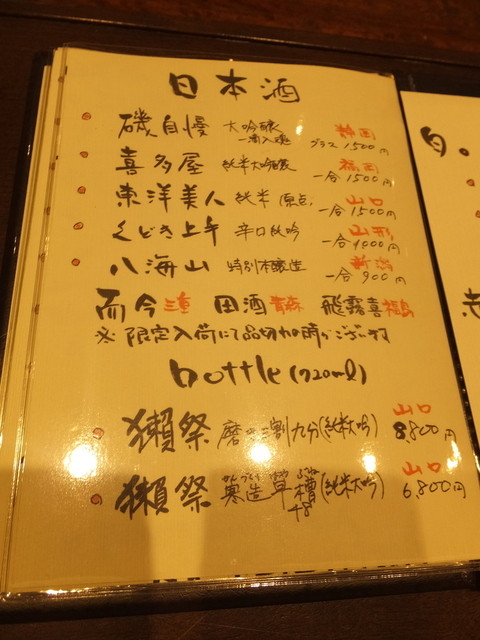 日本酒
磯自慢 大吟醸 一滴入魂 静岡 グラス1500円
喜多屋 純米大吟醸 福岡 一合1500円
東洋美人 純米 原点 山口 一合1500円
くどき上手 辛口吟 山形 一合1000円
八海山 特別本醸造 新潟 一合900円
而今三重 田酒青森 飛露喜福島
※ 限定入荷にて品切れの時がございます
bottle (720ml)
獺祭 磨き三割九分(純米大吟) 山口 8,800円
獺祭 寒造早槽(純米大吟) 山口 6,800円
48
自・